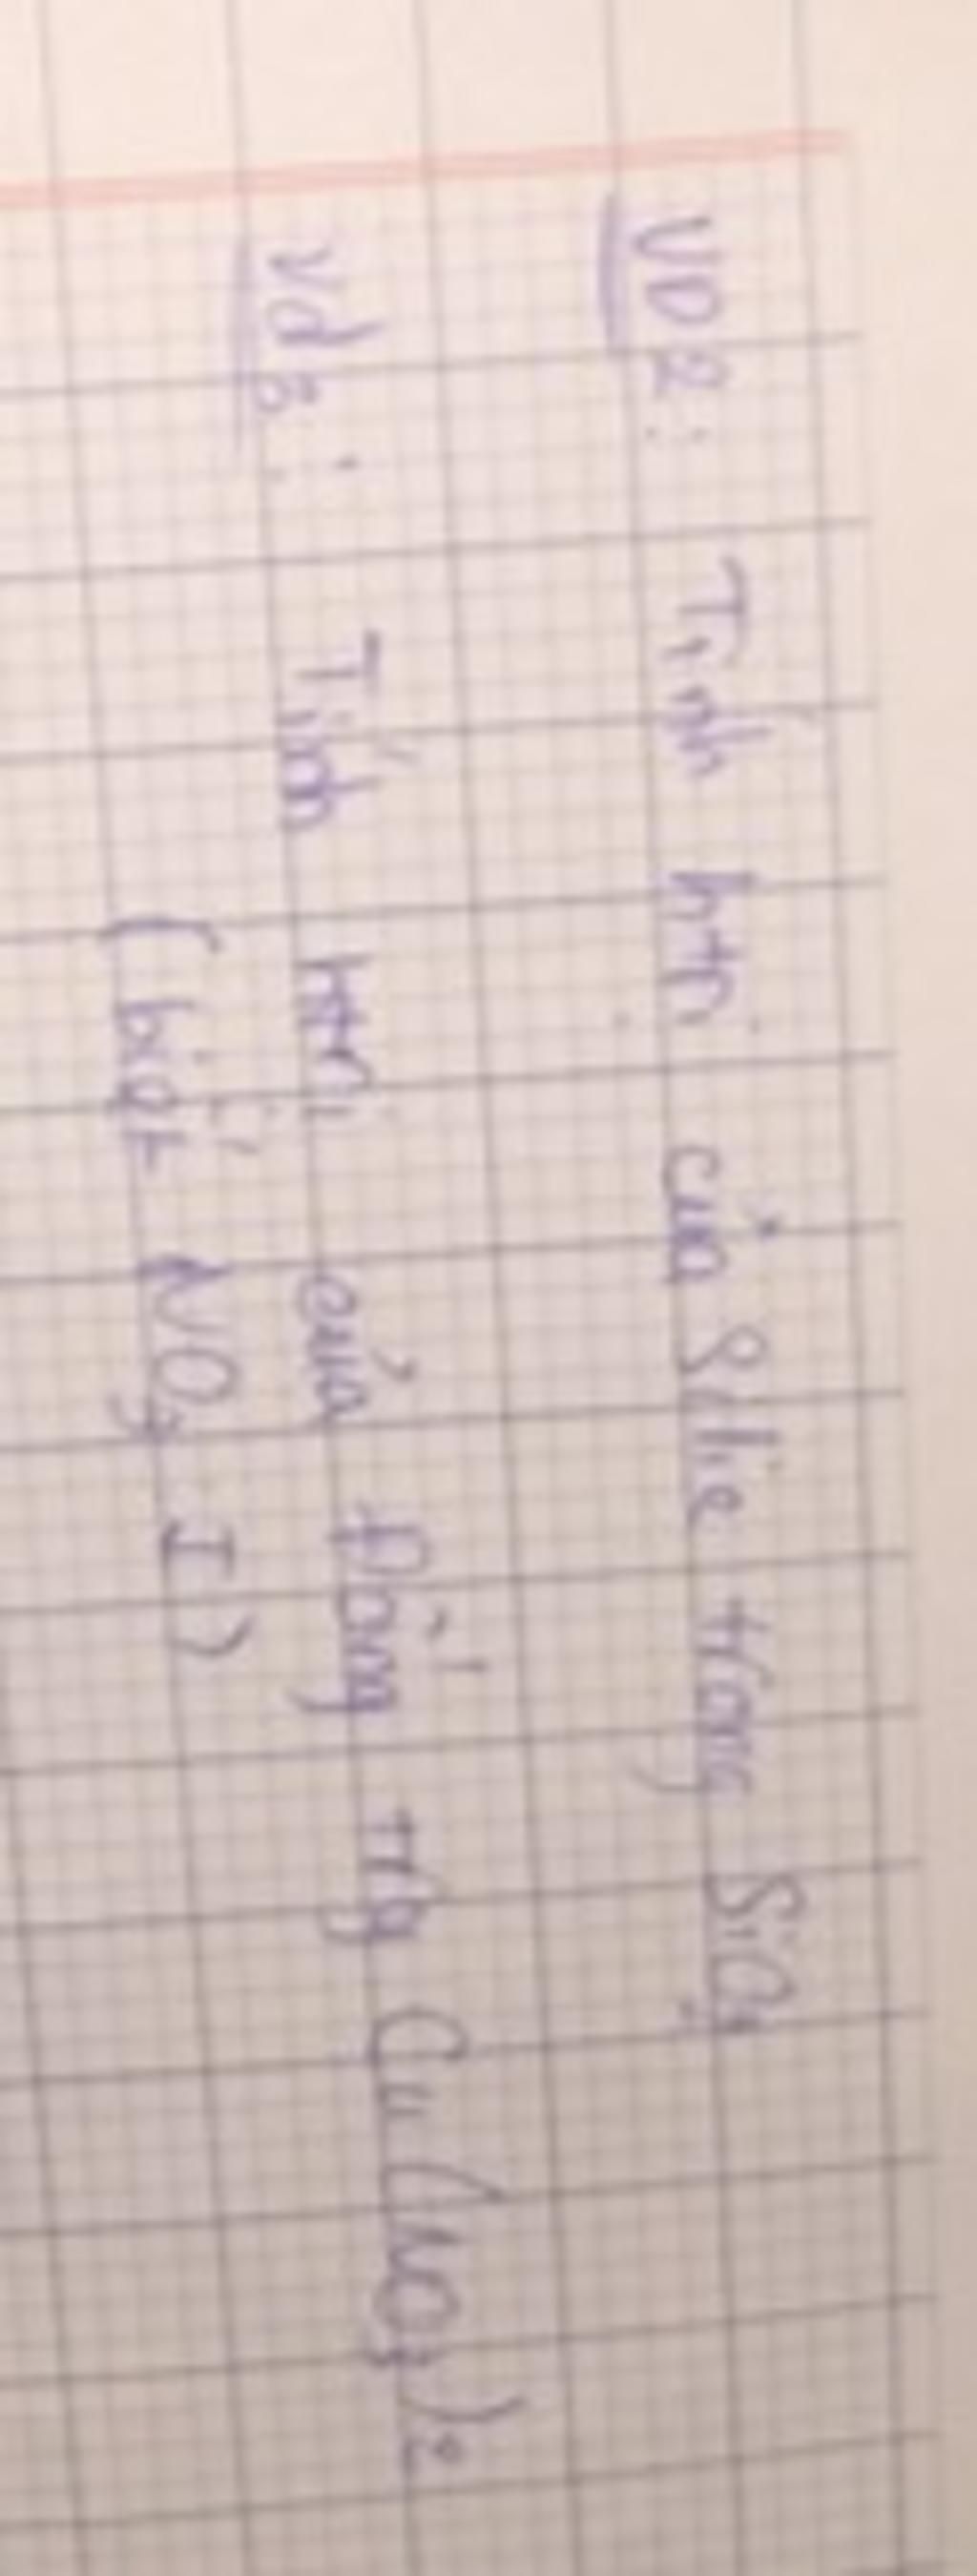 VD2: Tính htrị của Silic trong SiO₂
Vd3: Tính htrị của Đồng trg Cu(NO₃)₂
(biết NO₃ I)